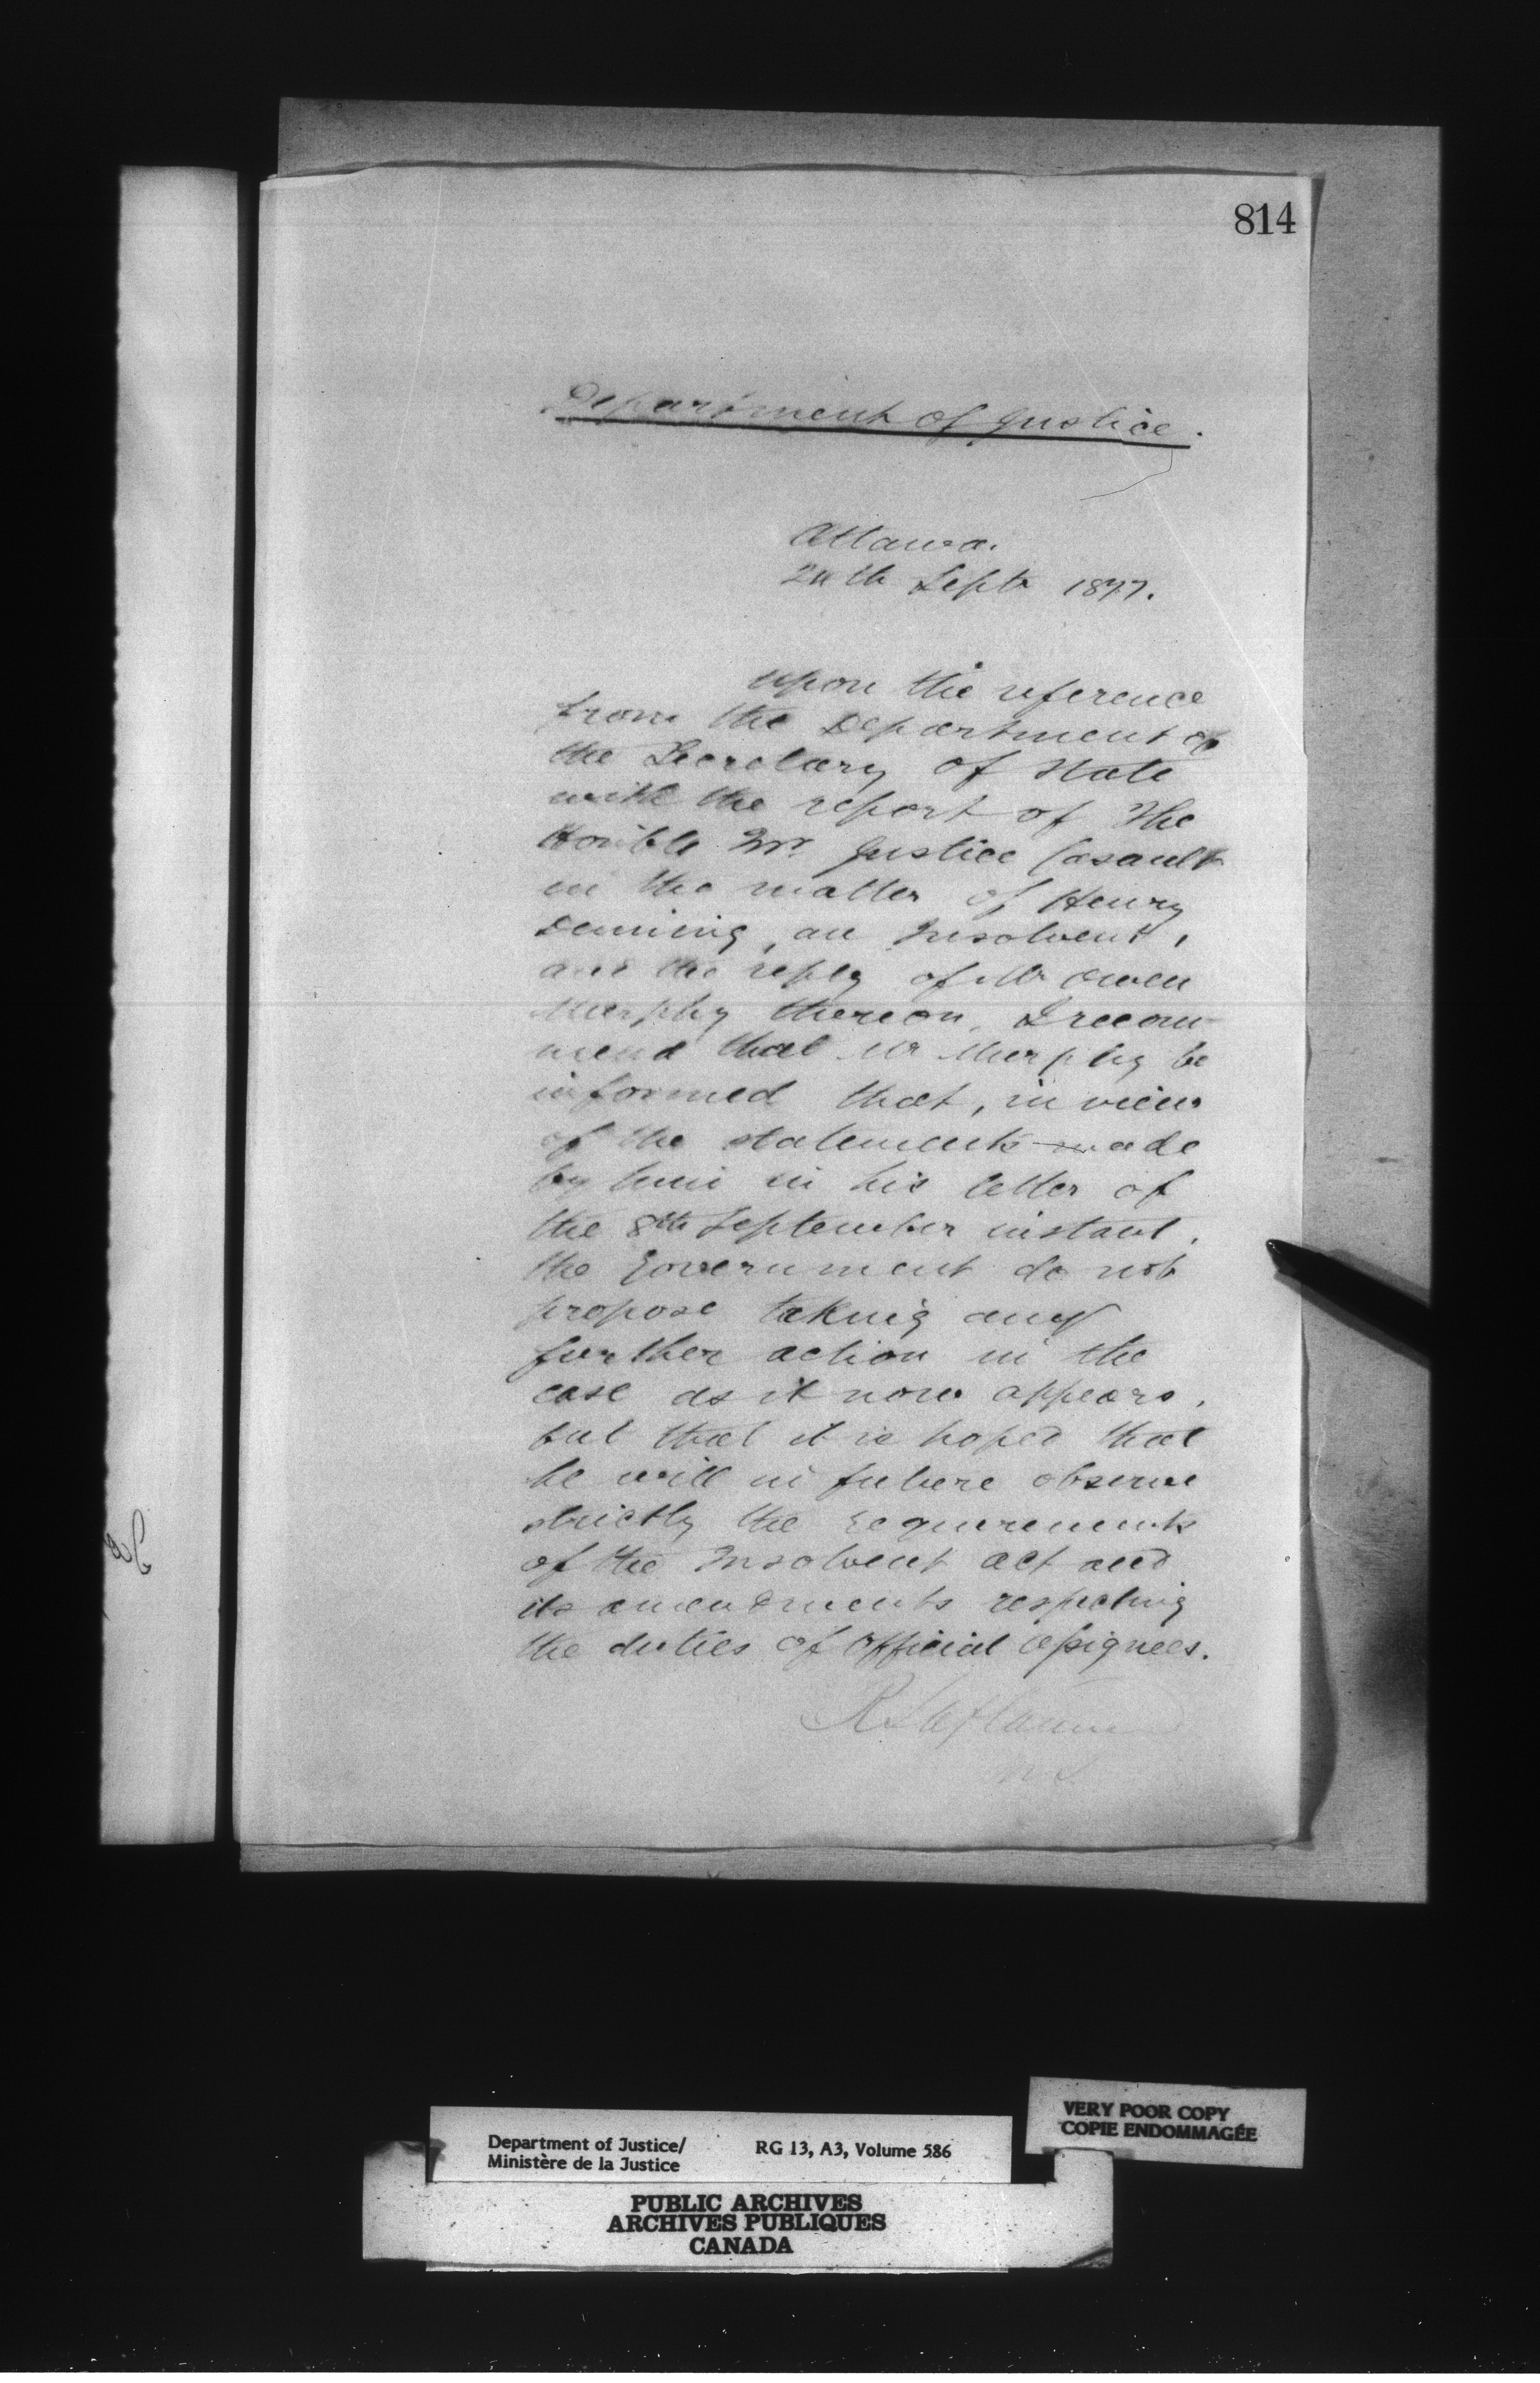 814
Department of Justice.
Ottawa.
24th Septr 1877.
Upon the reference
from the Department of
the Secretary of State
with the report of The
Honble Mr. Justice Casault
in the matter of Henry
Denning, an Insolvent,
and the reply of Mr Owen
Murphy thereon, I recom-
mend that Mr Murphy be
informed that, in view
of the statements made
by him in his letter of
the 8th September instant,
the Government do not
propose taking any
further action in the
case as it now appears,
but that it is hoped that
he will in future observe
strictly the requirements
of the Insolvent Act and
its amendments respecting
the duties of Official Assignees.
R Laflamme
VERY POOR COPY
COPIE ENDOMMAGÉE
Department of Justice/ RG 13, A3, Volume 586
Ministère de la Justice
PUBLIC ARCHIVES
ARCHIVES PUBLIQUES
CANADA